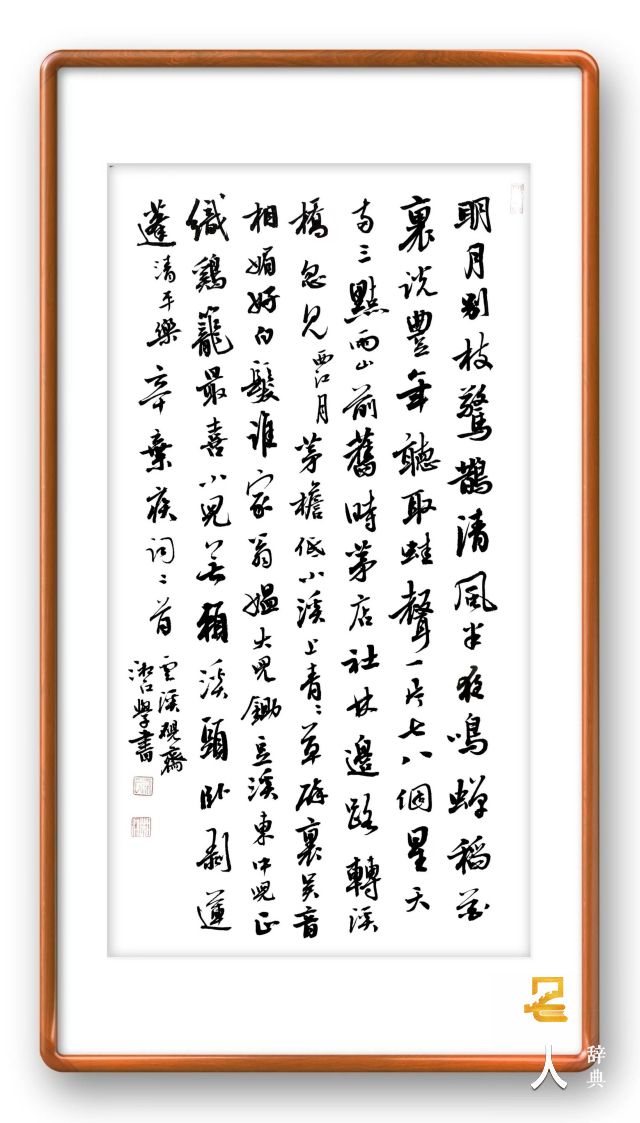 明月别枝驚鵲清風半夜鳴蟬稻花
裏説豐年聽取蛙聲一片七八個星天
兩三點雨山前舊時茅店社林邊路轉溪
橋忽見西江月茅檐低小溪上青〻草醉裏吴音
相媚好白髮誰家翁媪大兒鋤豆溪東中兒正
織鷄籠最喜小兒無賴溪頭卧剥蓮
蓬清平樂辛棄疾詞二首
雲溪硯齋
學書
人
辞典